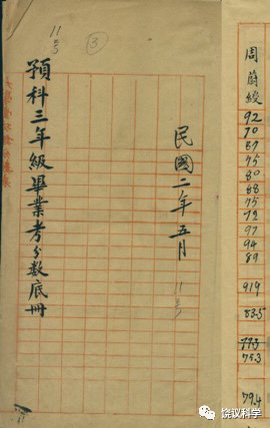 民國二年五月
預科三年級畢業考分数底冊
11
3
周蔚綬
92
70
87
75
80
88
75
72
97
94
89
919
83.5
79.3
79.4
饶议科学